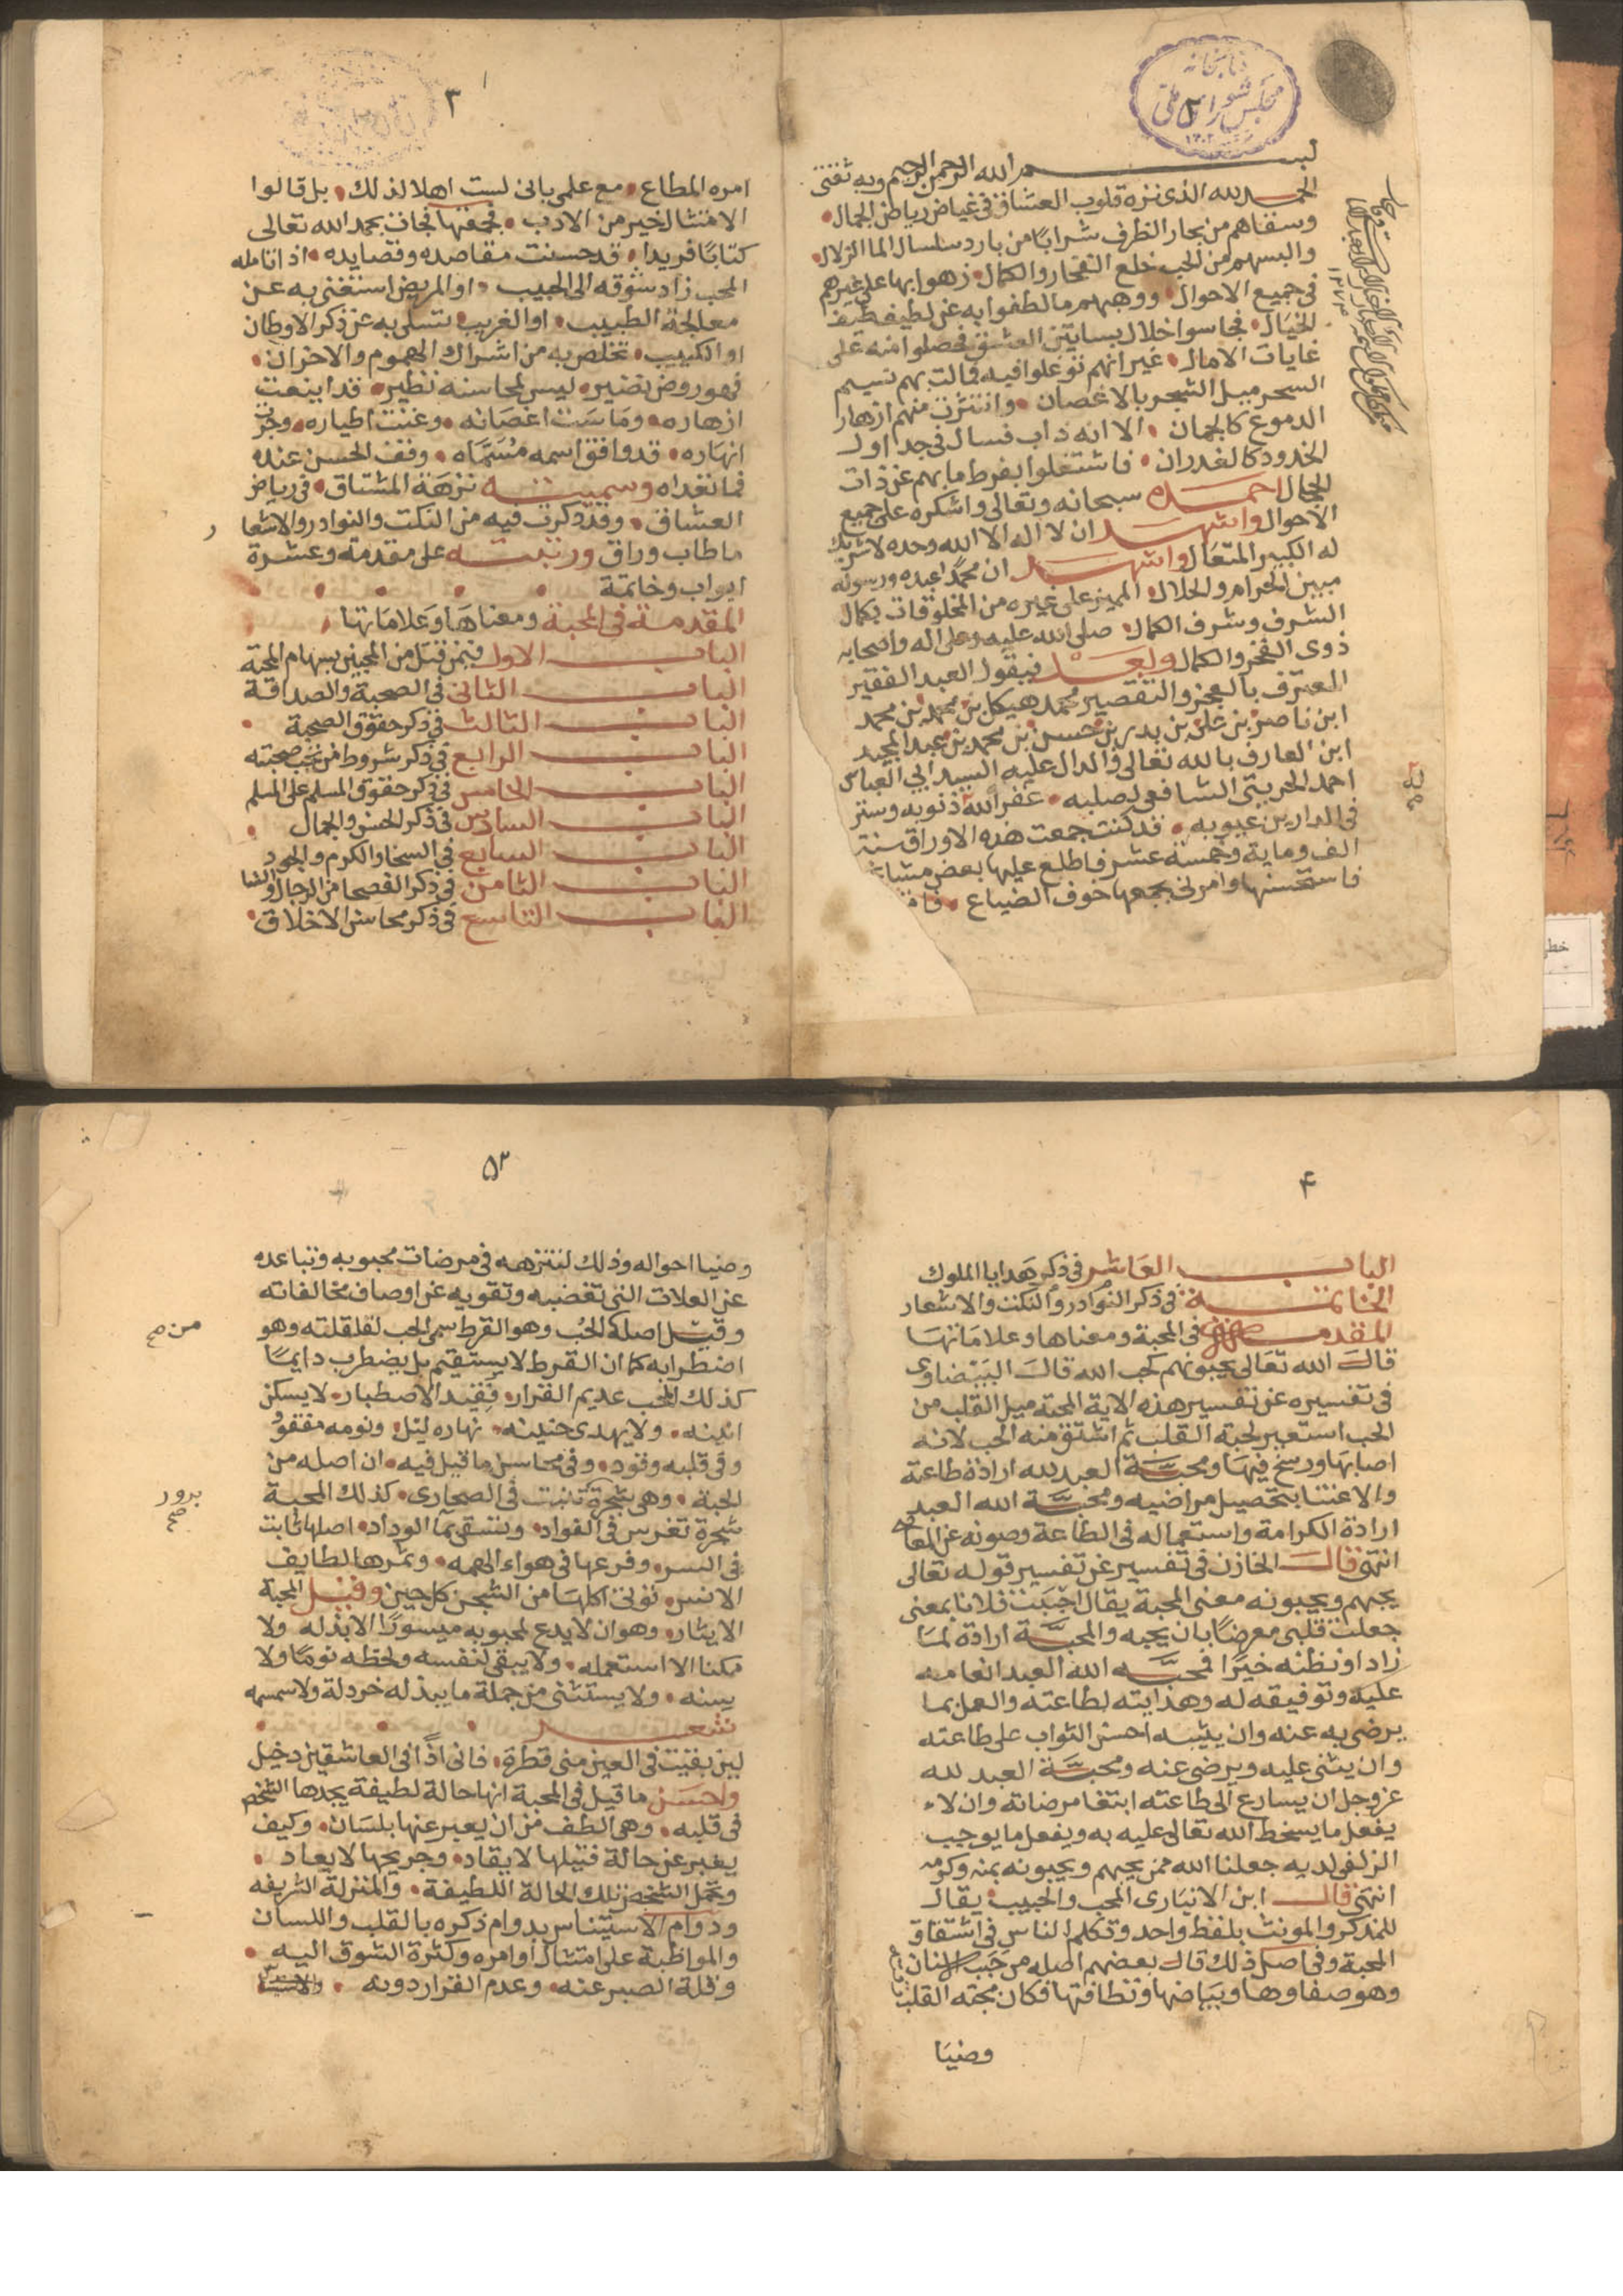 كتابخانه
مجلس شورای ملی
بسم الله الرحمن الرحيم وبه ثقتى
الحمد لله الذى نزه قلوب العشاق فى غياض رياض الجمال
وسقاهم من بحار الظرف شرابًا من بارد سلسال الما الزلال
والبسهم من الحب خلع الفخار والكمال زهوا بها على غيرهم
فى جميع الاحوال ووهبهم ما لطفوا به عن لطيف طيف
الخيال فجاسوا خلال بساتين العشق فحصلوا منه على
غايات الامال غير انهم توغلوا فيه فمالت بهم نسيم
السحر ميل الشجر بالاغصان وانتثرت منهم ازهار
الدموع كالجمان الا انه ذاب فسال فى جداول
الخدود كالغدران فاشتغلوا بفرط ما بهم عن ذات
الجمال احمده سبحانه وتعالى واشكره على جميع
الاحوال واشهد ان لا اله الا الله وحده لا شريك
له الكبير المتعال واشهد ان محمدًا عبده ورسوله
مبين الحرام والحلال المميز على غيره من المخلوقات بكمال
الشرف وشرف الكمال صلى الله عليه وعلى اله واصحابه
ذوى الفخر والكمال وبعد فيقول العبد الفقير
المعترف بالعجز والتقصير محمد هيكل بن محمد بن محمد
ابن ناصر بن على بن بدر بن حسن بن محمد بن عبد المجيد
ابن العارف بالله تعالى والدال عليه السيد ابى العباس
احمد الحريثى الشافعى لصلبه غفر الله ذنوبه وستر
فى الدارين عيوبه قد كنت جمعت هذه الاوراق سنة
الف وماية وخمسة عشر فاطلع عليها بعض
فاستحسنها وامرنى بجمعها خوف الضياع
٣
امره المطاع مع علمى بانى لست اهلا لذلك بل قالوا
الامتثال خير من الادب فجمعتها فجات بحمد الله تعالى
كتابًا فريدا قد حسنت مقاصده وقصايده اذا تامله
المحب زاد شوقه الى الحبيب او المريض استغنى به عن
معالجة الطبيب او الغريب تسلى به عن ذكر الاوطان
او الكئيب تخلص به من اشراك الهموم والاحزان
فهو روض نضير ليس لمحاسنه نظير قد اينعت
ازهاره وماست اغصانه وغنت اطياره وجرت
انهاره قد وافق اسمه مسماه ووقف الحسن عنده
فما تعداه وسميته نزهة المشتاق فى رياض
العشاق وقد ذكرت فيه من النكت والنوادر والاشعار
ما طاب وراق ورتبته على مقدمة وعشرة
ابواب وخاتمة
المقدمة فى المحبة ومعناها وعلاماتها
الباب الاول فيمن قتل من المحبين بسهام المحبة
الباب الثانى فى الصحبة والصداقة
الباب الثالث فى ذكر حقوق الصحبة
الباب الرابع فى ذكر شروط من تجب صحبته
الباب الخامس فى ذكر حقوق المسلم على المسلم
الباب السادس فى ذكر الحسن والجمال
الباب السابع فى السخا والكرم والجود
الباب الثامن فى ذكر الفصحا من الرجال والنسا
الباب التاسع فى ذكر محاسن الاخلاق
۴
الباب العاشر فى ذكر هدايا الملوك
الخاتمة فى ذكر النوادر والنكت والاشعار
المقدمة فى المحبة ومعناها وعلاماتها
قال الله تعالى يحبونهم كحب الله قال البيضاوى
فى تفسيره عن تفسير هذه الاية المحبة ميل القلب من
الحب استعير لحبة القلب ثم اشتق منه الحب لانه
اصابها ورسخ فيها ومحبة العبد لله ارادة طاعة
والاعتنا بتحصيل مراضيه ومحبة الله العبد
ارادة الكرامة واستعماله فى الطاعة وصونه عن المعاصى
انتهى قال الخازن فى تفسير عن تفسير قوله تعالى
يحبهم ويحبونه معنى المحبة يقال احببت فلانا بمعنى
جعلت قلبى معرضًا بان يحبه والمحبة ارادة لما
زاد او نظنه خيرًا فمحبة الله العبد انعامه
عليه وتوفيقه له وهدايته لطاعته والعمل بما
يرضى به عنه وان يثيبه احسن الثواب على طاعته
وان يثنى عليه ويرضى عنه ومحبة العبد لله
عز وجل ان يسارع الى طاعته ابتغا مرضاته وان لا
يفعل ما يسخط الله تعالى عليه به ويفعل ما يوجب
الزلفى لديه جعلنا الله ممن يحبهم ويحبونه بمنه وكرمه
انتهى قال ابن الانبارى المحب والحبيب يقال
للمذكر والمونث بلفظ واحد وتكلم الناس فى اشتقاق
المحبة وفى اصل ذلك قال بعضهم اصله من حبب الاسنان
وهو صفاوها وبياضها ونظافتها فكان محبته القلب
وضيا
۵
وضيا احواله وذلك لتنزهه فى مرضات محبوبه وتباعده
عن العلات التى تغضبه وتقويه عن اوصاف مخالفاته
وقيل اصله الحب وهو القرط سمى الحب لقلقلته وهو
من صح
اضطرابه كما ان القرط لا يستقيم بل يضطرب دايمًا
كذلك المحب عديم القرار فقيد الاصطبار لا يسكن
انينه ولا يهدى حنينه نهاره ليل ونومه مفقود
وفى قلبه وقود وفى محاسن ما قيل فيه ان اصله من
الحبة وهى شجرة تنبت فى الصحارى كذلك المحبة
برور صح
شجرة تغرس فى الفواد وتسقى بما الوداد اصلها ثابت
فى السر وفرعها فى هواء الهمه وثمرها لطايف
الانس توتى اكلها من الشجن كل حين وقيل المحبة
الايثار وهو ان لا يدع لمحبوبه ميسورًا الا بذله ولا
ممكنا الا استعمله ولا يبقى لنفسه ولحظه نومًا ولا
سنه ولا يستثنى من جملة ما يبذله خردلة ولا سمسمه
شعر
لين بقيت فى العين منى قطرة فانى اذًا فى العاشقين دخيل
واحسن ما قيل فى المحبة انها حالة لطيفة يجدها الشخص
فى قلبه وهى الطف من ان يعبر عنها بلسان وكيف
يعبر عن حالة قتيلها لا يقاد وجريحها لا يعاد
وتحمل الشخص تلك الحالة اللطيفة والمنزلة الشريفه
ودوام الاستيناس بدوام ذكره بالقلب واللسان
والمواظبة على امتثال اوامره وكثرة الشوق اليه
وقلة الصبر عنه وعدم القرار دونه